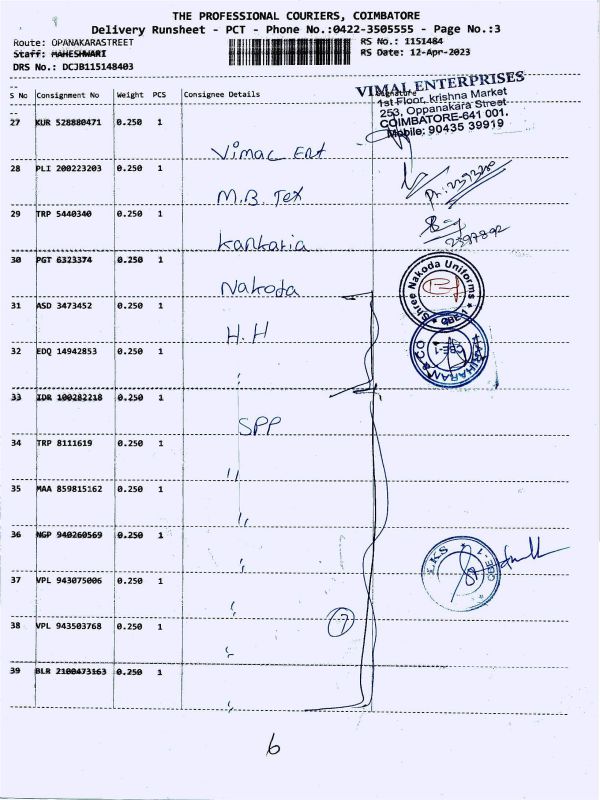 THE PROFESSIONAL COURIERS, COIMBATORE
Delivery Runsheet - PCT - Phone No.:0422-3505555 - Page No.:3
Route: OPANAKARASTREET
RS No.: 1151484
Staff: MAHESHWARI
RS Date: 12-Apr-2023
DRS No.: DCJB115148403
S No Consignment No Weight PCS Consignee Details Signature
VIMAL ENTERPRISES
1st Floor, krishna Market
253, Oppanakara Street
COIMBATORE-641 001.
Mobile: 90435 39919
27 KUR 528880471 0.250 1
Vimal Ent
28 PLI 200223203 0.250 1
M.B. Tex
29 TRP 5440340 0.250 1
kankaria
2397892
30 PGT 6323374 0.250 1
Nakoda
Shree Nakoda Uniforms
CBE-1
31 ASD 3473452 0.250 1
H.H
HARIHARAN & CO
CBE-1
32 EDQ 14942853 0.250 1
33 IDR 100282218 0.250 1
SPP
34 TRP 8111619 0.250 1
"
35 MAA 859815162 0.250 1
"
36 NGP 940260569 0.250 1
"
L.K.S
CBE-1
37 VPL 943075006 0.250 1
"
38 VPL 943503768 0.250 1
7
"
39 BLR 2100473163 0.250 1
"
6